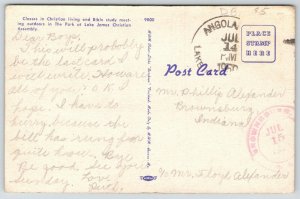 Classes in Christian living and Bible study meeting outdoors in The Park at Lake James Christian Assembly.
9800
Dear Boys,
This will probably
be the last card I
will write. How are
all of you? O.K. I
hope. I have to
hurry because the
bell has rung for
quite hour. Bye
Be good. See you
Sunday. Love
ANGOLA
JUL
14
PM
LAKE
PLACE
STAMP
HERE
Post Card
Mr. Phillip Alexander
Brownsburg
Indiana
JUL
15
c/o Mr. Floyd Alexander